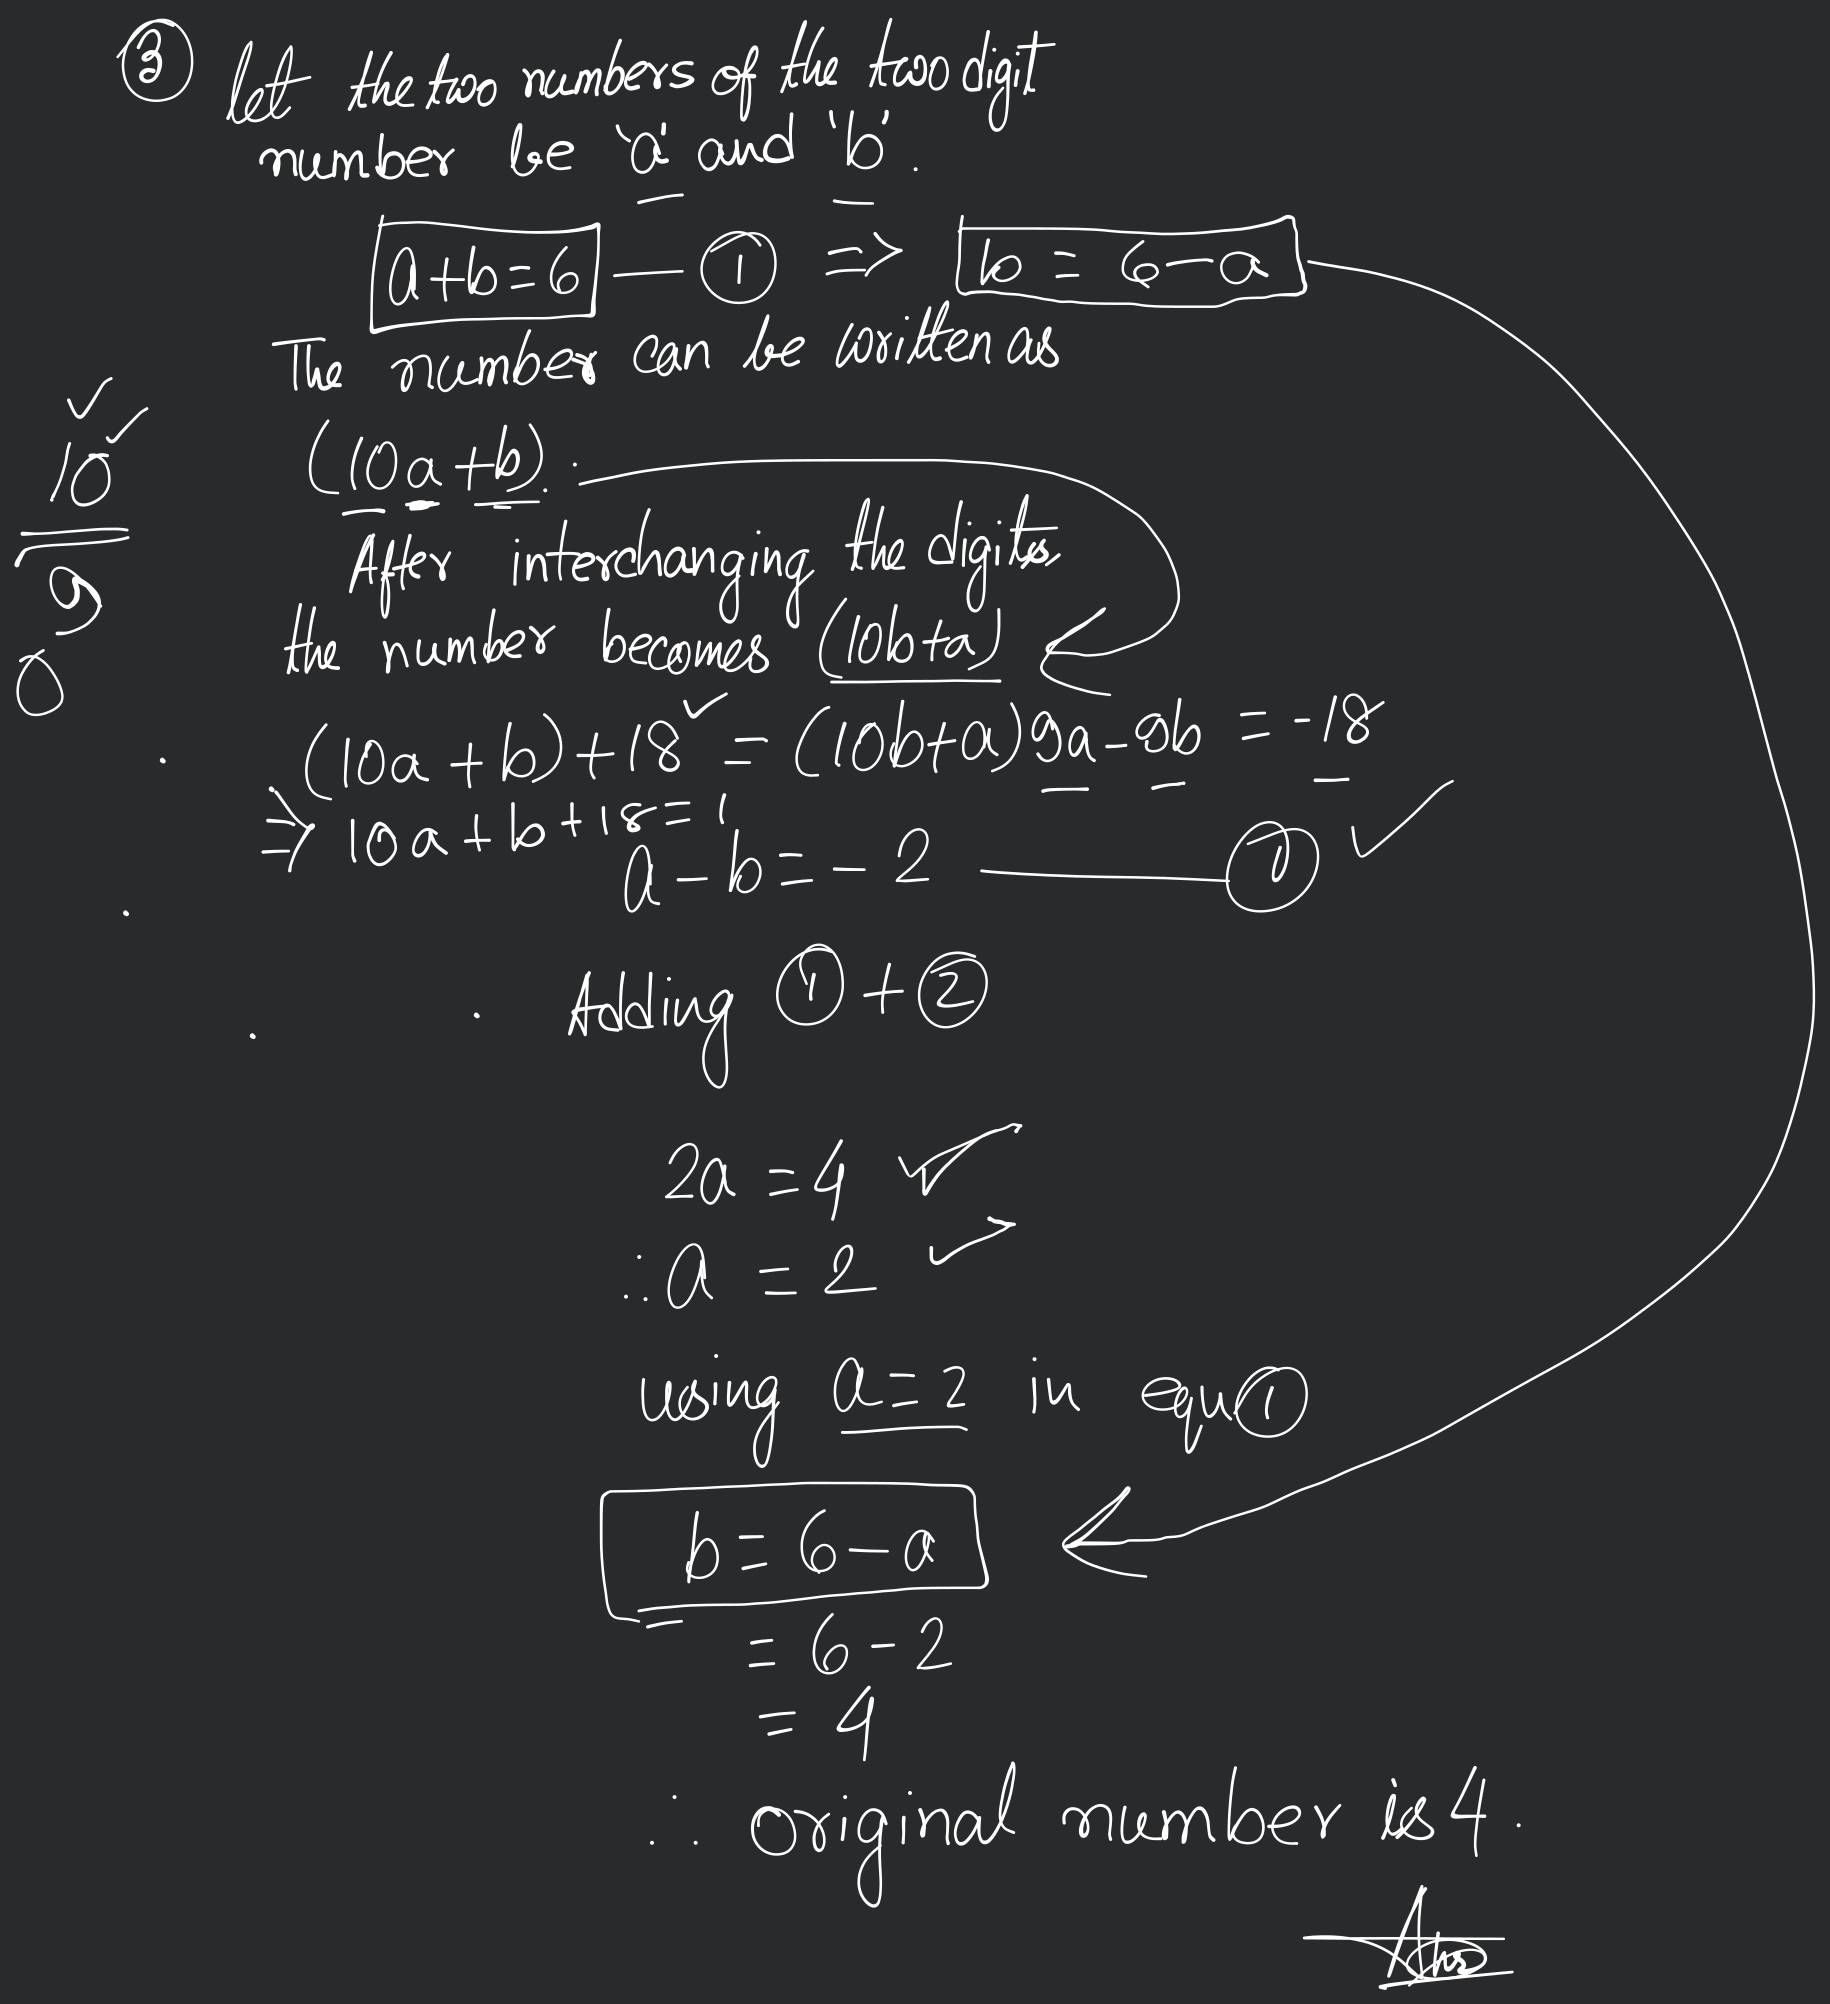 ③ let the two numbers of the two digit
number be 'a' and 'b'.
a+b=6 — ① ⇒ b = 6-a
The number can be written as
(10a+b).
10
9
0
After interchanging the digits,
the number becomes (10b+a)
(10a+b)+18 = (10b+a) 9a-9b = -18
⇒ 10a+b+18=1
a-b=-2 — ①
Adding ①+②
2a=4
∴ a = 2
using a=2 in equ ①
b = 6-a
= 6-2
= 4
∴ original number is 4.
Ans